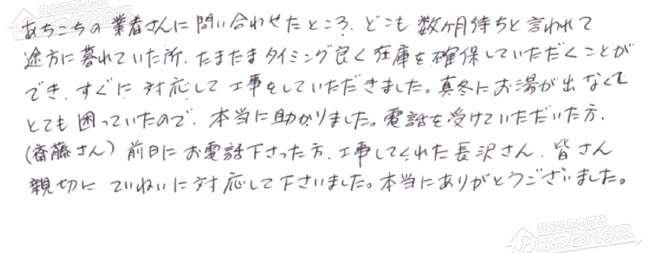 あちこちの業者さんに問い合わせたところ、どこも数ヶ月待ちと言われて
途方に暮れていた所、たまたまタイミング良く在庫を確保していただくことが
でき、すぐに対応して工事をしていただきました。真冬にお湯が出なくて
とても困っていたので、本当に助かりました。電話を受けていただいた方、
(斎藤さん) 前日にお電話下さった方、工事してくれた長沢さん、皆さん
親切にていねいに対応して下さいました。本当にありがとうございました。